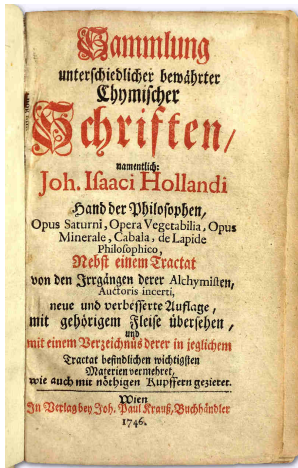 Sammlung
unterschiedlicher bewährter
Chymischer
Schriften/
namentlich:
Joh. Isaaci Hollandi
Hand der Philosophen,
Opus Saturni, Opera Vegetabilia, Opus
Minerale, Cabala, de Lapide
Philosophico,
Nebst einem Tractat
von den Irrgängen derer Alchymisten,
Auctoris incerti,
neue und verbesserte Auflage,
mit gehörigem Fleise übersehen,
und
mit einem Verzeichnus derer in jeglichem
Tractat befindlichen wichtigsten
Materien vermehret,
wie auch mit nöthigen Kupffern gezieret.
Wien
In Verlag bey Joh. Paul Krauß, Buchhändler
1746.